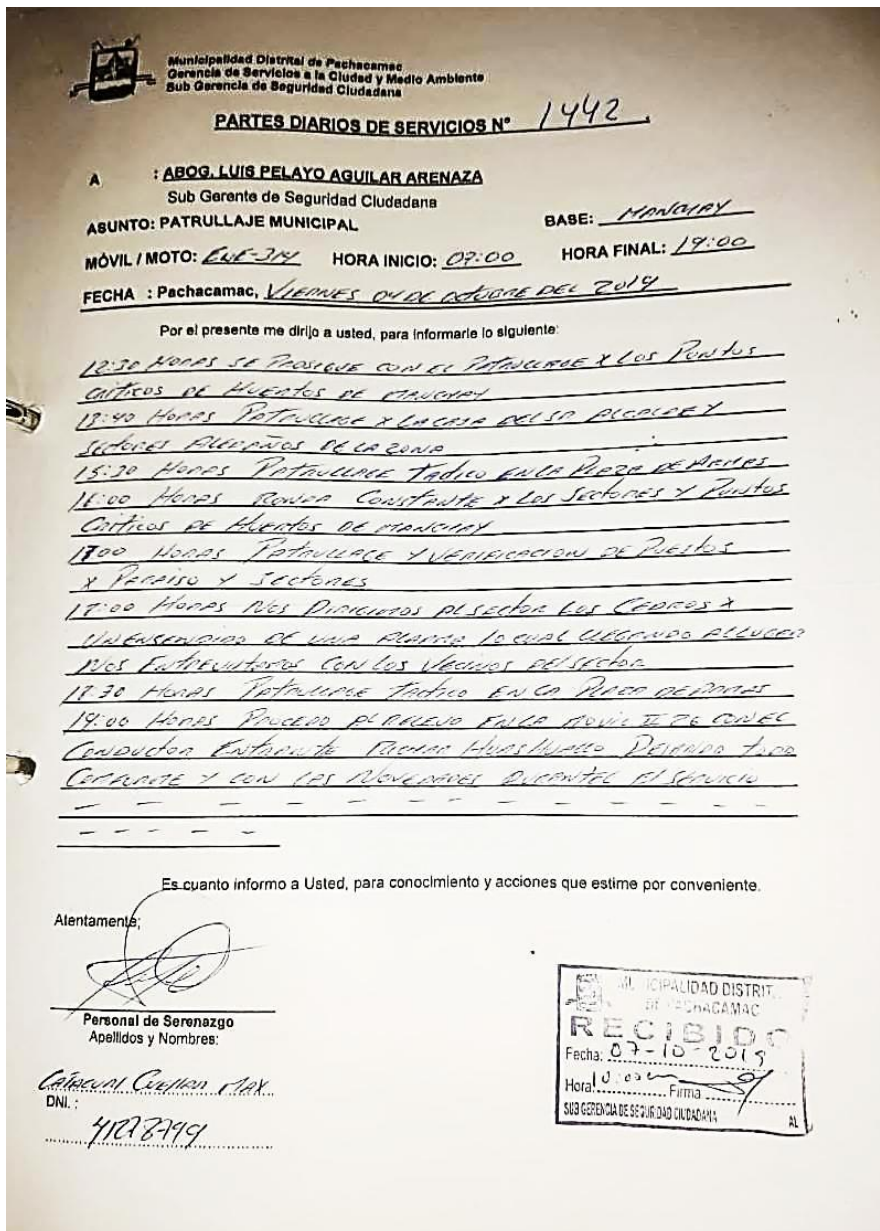 Municipalidad Distrital de Pachacamac
Gerencia de Servicios a la Ciudad y Medio Ambiente
Sub Gerencia de Seguridad Ciudadana
PARTES DIARIOS DE SERVICIOS N° 1442
A : ABOG. LUIS PELAYO AGUILAR ARENAZA
Sub Gerente de Seguridad Ciudadana
ASUNTO: PATRULLAJE MUNICIPAL BASE: MANCHAY
MÓVIL / MOTO: HORA INICIO: 07:00 HORA FINAL: 19:00
FECHA : Pachacamac, VIERNES 04 DE OCTUBRE DEL 2019
Por el presente me dirijo a usted, para informarle lo siguiente:
12:30 HORAS SE PROSIGUE CON EL PATRULLAGE X LOS PUNTOS
CRITICOS DE HUERTOS DE MANCHAY
13:40 HORAS PATRULLAGE X LA CASA DEL SR ALCALDE Y
SECTORES ALEDAÑOS DE LA ZONA
15:30 HORAS PATRULLAGE EN LA PLAZA DE ARMAS
16:00 HORAS RONDA CONSTANTE X LOS SECTORES Y PUNTOS
CRITICOS DE HUERTOS DE MANCHAY
17:00 HORAS PATRULLAGE Y VERIFICACION DE PUESTOS
X PARAISO Y SECTORES
HORAS NOS DIRIGIMOS AL SECTOR LOS CEDROS X
UN ENSENDIDO DE UNA ALARMA LO CUAL LLEGANDO AL LUGAR
NOS ENTREVISTAMOS CON LOS VECINOS DEL SECTOR
HORAS PATRULLAGE TACTICO EN LA PLAZA DE ARMAS
19:00 HORAS PROCEDO AL RELEVO EN LA MOVIL CON EL
CONDUCTOR ENTRANTE DEJANDO TODO
CONFORME Y CON LAS NOVEDADES DURANTEL El SERVICIO
- - - - - - - - - - - - -
- - - - -
Es cuanto informo a Usted, para conocimiento y acciones que estime por conveniente.
Atentamente;
Personal de Serenazgo
Apellidos y Nombres:
MAX
DNI. :
MUNICIPALIDAD DISTRIT
DE PACHACAMAC
RECIBIDO
Fecha: 07-10-2019
Hora: Firma
SUB GERENCIA DE SEGURIDAD CIUDADANA
AL